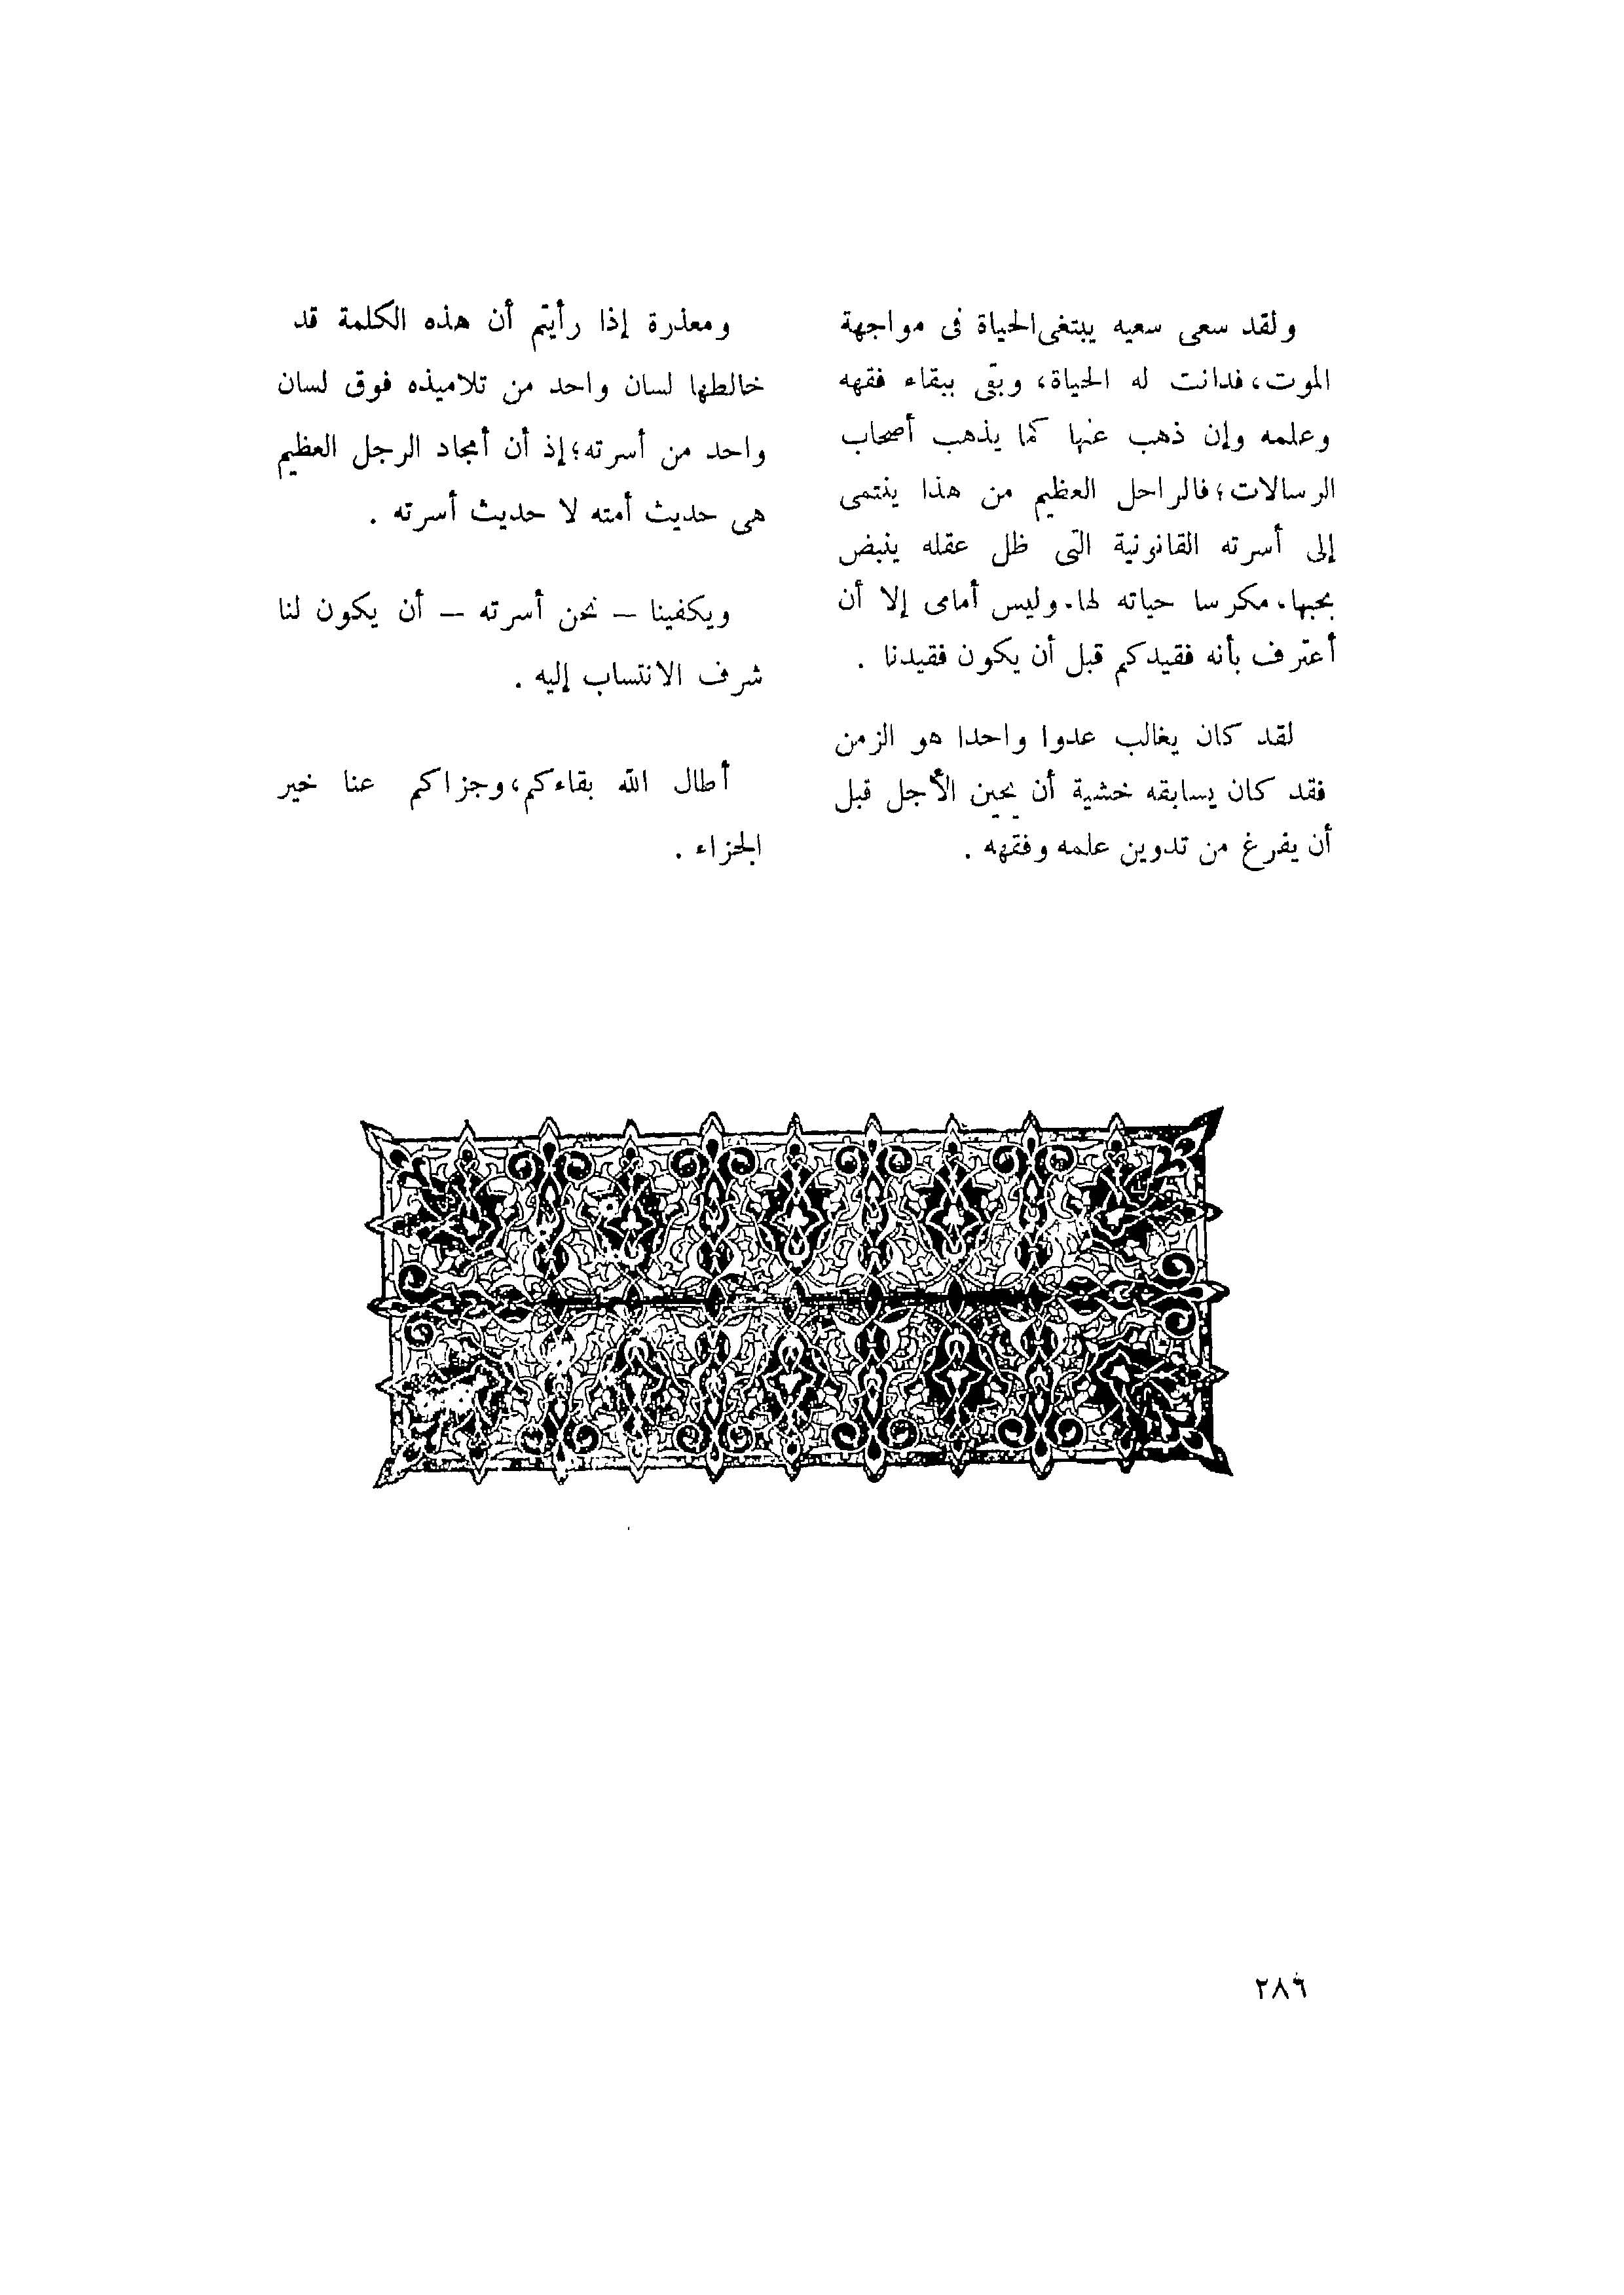 ولقد سعى سعيه يبتغى الحياة فى مواجهة
الموت، فدانت له الحياة، وبقى ببقاء فقهه
وعلمه وإن ذهب عنها كما يذهب أصحاب
الرسالات؛ فالراحل العظيم من هذا ينتمى
إلى أسرته القانونية التى ظل عقله ينبض
بحبها. مكرسا حياته لها. وليس أمامى إلا أن
أعترف بأنه فقيدكم قبل أن يكون فقيدنا .
لقد كان يغالب عدوا واحدا هو الزمن
فقد كان يسابقه خشية أن يحين الأجل قبل
أن يفرغ من تدوين علمه وفقهه .
ومعذرة إذا رأيتم أن هذه الكلمة قد
خالطها لسان واحد من تلاميذه فوق لسان
واحد من أسرته؛ إذ أن أمجاد الرجل العظيم
هى حديث أمته لا حديث أسرته .
ويكفينا – نحن أسرته – أن يكون لنا
شرف الانتساب إليه .
أطال الله بقاءكم، وجزاكم عنا خير
الجزاء .
٢٨٦